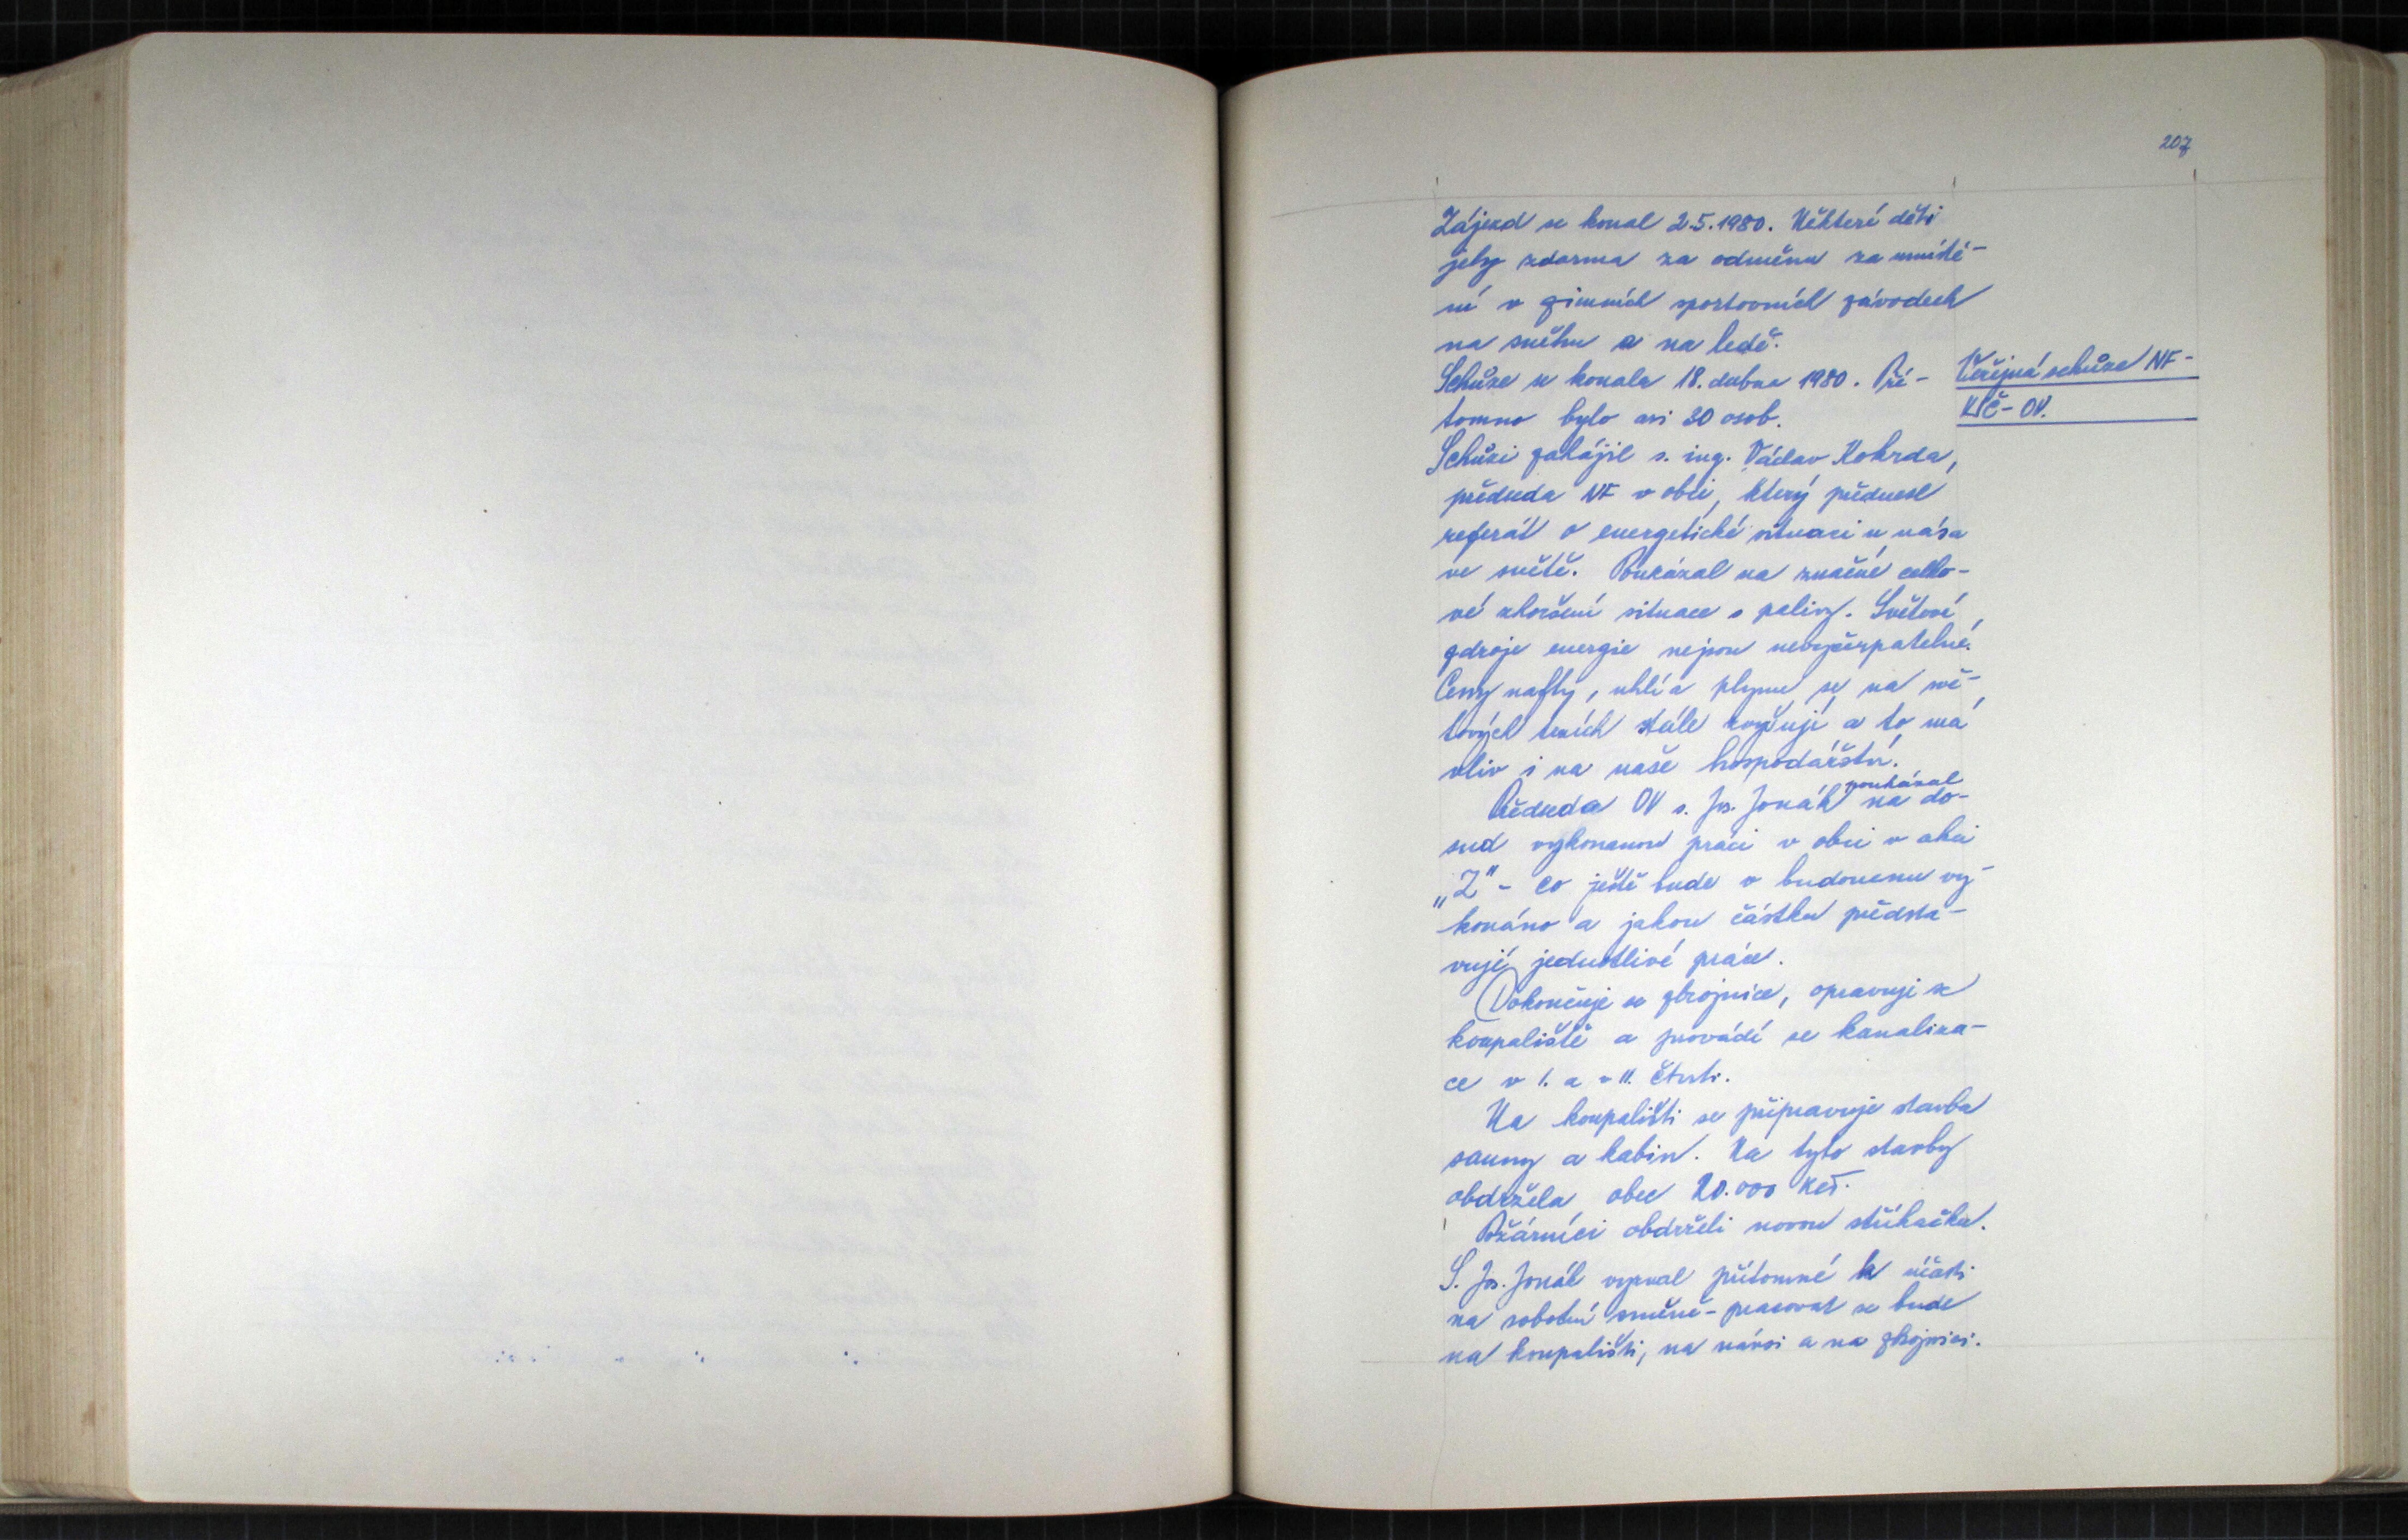 207
Zájezd se konal 2.5.1980. Některé děti
jely zdarma za odměnu za umístě-
ní v zimních sportovních závodech
na sněhu a na ledě.
Schůze se konala 18. dubna 1980. Pří-
Veřejná schůze NF-
tomno bylo asi 30 osob.
KSČ-OV.
Schůzi zahájil s. ing. Václav Kohrda,
předseda NF v obci, který přednesl
referát o energetické situaci u nás a
ve světě. Poukázal na značné celko-
vé zhoršení situace s palivy. Světové
zdroje energie nejsou nevyčerpatelné.
Ceny nafty, uhlí a plynu se na svě-
tových trzích stále zvyšují a to má
vliv i na naše hospodářství.
Předseda OV s. Jos. Jonák poukázal na do-
sud vykonanou práci v obci v akci
„Z" - co ještě bude v budoucnu vy-
konáno a jakou částku předsta-
vují jednotlivé práce.
Dokončuje se zbrojnice, opravuje se
koupaliště a provádí se kanaliza-
ce v I. a v II. čtvrti.
Na koupališti se připravuje stavba
sauny a kabin. Na tyto stavby
obdržela obec 20.000 Kčs.
Požárníci obdrželi novou stříkačku.
S. Jos. Jonák vyzval přítomné k účasti
na sobotní směně - pracovat se bude
na koupališti, na návsi a na zbrojnici.